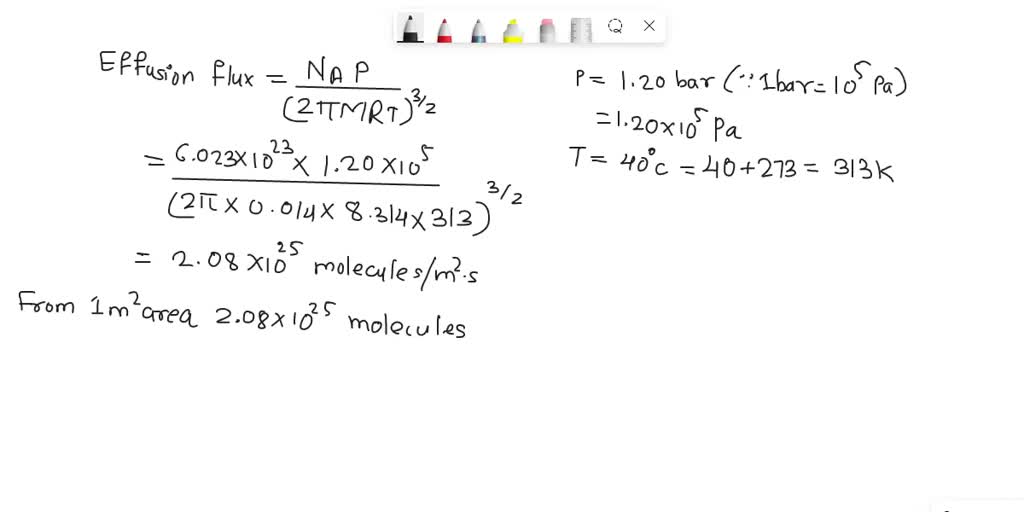 Effusion flux = NA P / (2πMRT)^3/2
= 6.023×10^23 × 1.20×10^5 / (2π × 0.014 × 8.314 × 313)^3/2
= 2.08×10^25 molecules/m²·s
From 1m² area 2.08×10^25 molecules
P = 1.20 bar (∵ 1bar = 10^5 Pa)
= 1.20×10^5 Pa
T = 40°C = 40+273 = 313K